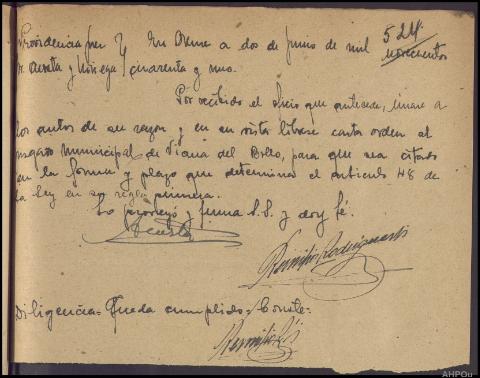 Providencia por } En Orense a dos de Junio de mil 524
Sr. Acosta y Noriega } novecientos
cuarenta y uno.
Por recibido el oficio que antecede, únase a
los autos de su razon y en su vista líbrese carta orden al
Juzgado Municipal de Viana del Bollo, para que sea citado
en la forma y plazo que determina el artículo 48 de
la Ley en su regla primera.
Lo proveyó y firma S.S. y doy fé.
Acosta
Remigio Rodriguez
Diligencia= Queda cumplido= Conste=
Remigio
AHPOu